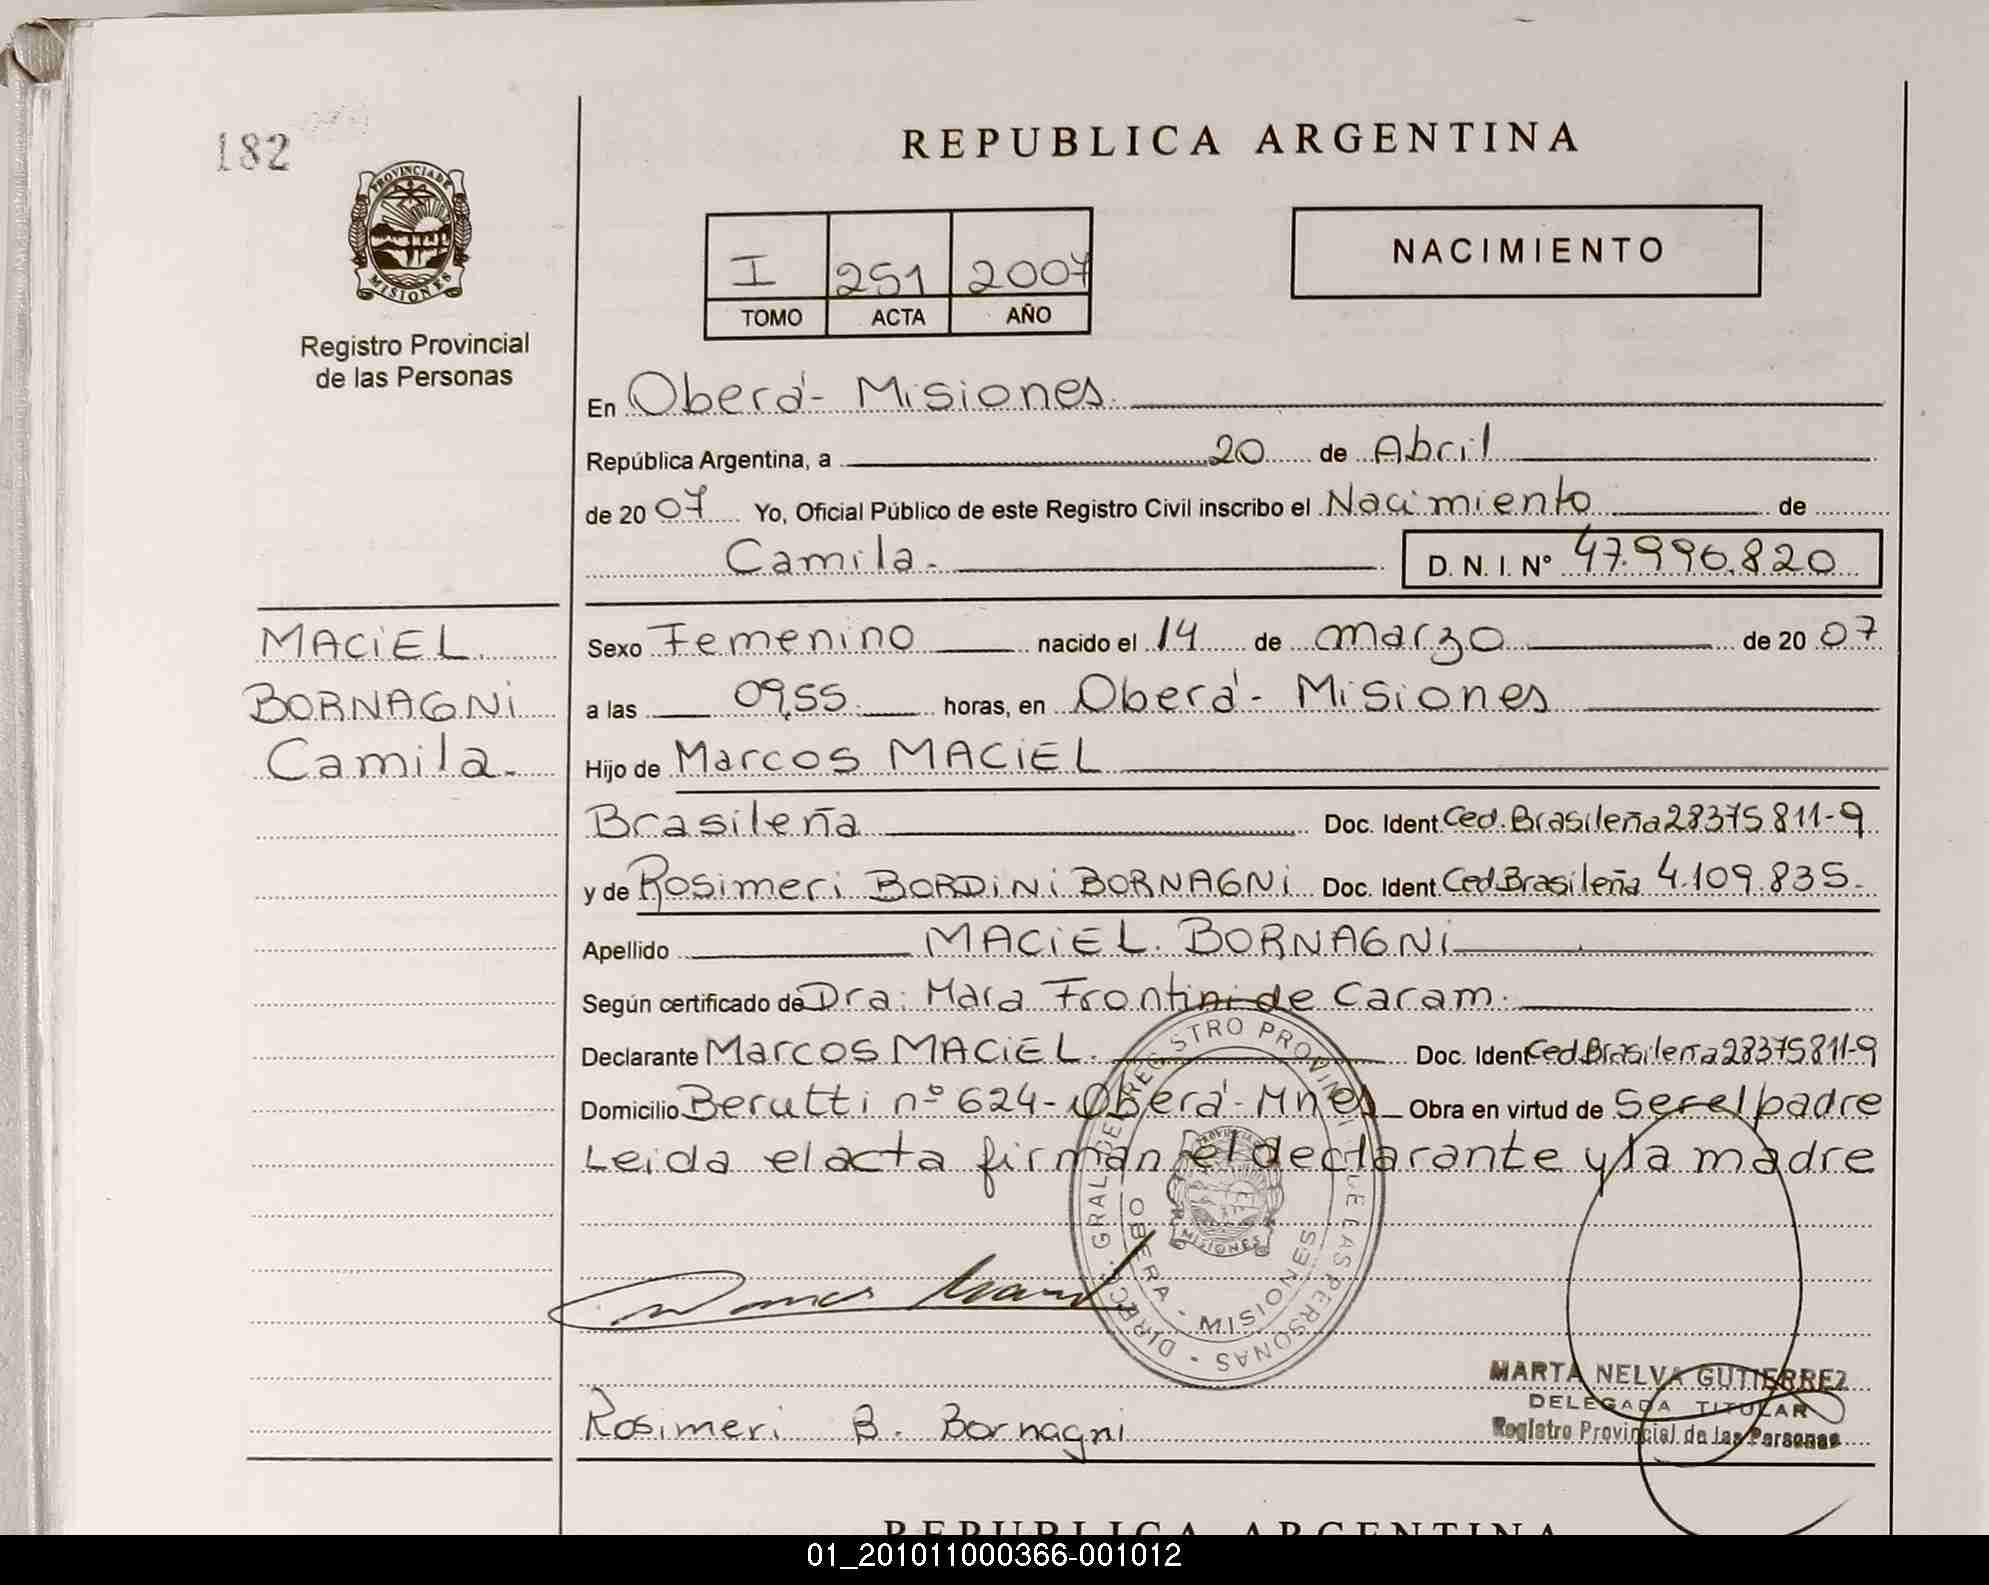 182
PROVINCIA DE
MISIONES
Registro Provincial
de las Personas
REPUBLICA ARGENTINA
I 251 2007
TOMO ACTA AÑO
NACIMIENTO
En Oberá - Misiones.
República Argentina, a 20 de Abril
de 20 07 Yo, Oficial Público de este Registro Civil inscribo el Nacimiento de
Camila. D. N. I. Nº 47.990.820
MACiEL
BORNAGNi
Camila.
Sexo Femenino nacido el 14 de marzo de 20 07
a las 09,55 horas, en Oberá - Misiones
Hijo de Marcos MACiEL
Brasileña Doc. Ident. Ced. Brasileña 28375811-9
y de Rosimeri BORDiNi BORNAGNi Doc. Ident. Ced. Brasileña 4.109.835.
Apellido MACiEL. BORNAGNi
Según certificado de Dra: Mara Frontini de Caram.
Declarante Marcos MACiEL. Doc. Ident Ced. Brasileña 28375811-9
Domicilio Berutti nº 624 - Oberá - Mnes Obra en virtud de ser el padre
Leida el acta firman el declarante y la madre
DIREC. GRAL. DEL REGISTRO PROVINCIAL DE LAS PERSONAS
OBERA - MISIONES
MISIONES
Rosimeri B. Bornagni
MARTA NELVA GUTIERREZ
DELEGADA TITULAR
Registro Provincial de las Personas
REPUBLICA ARGENTINA
01_201011000366-001012